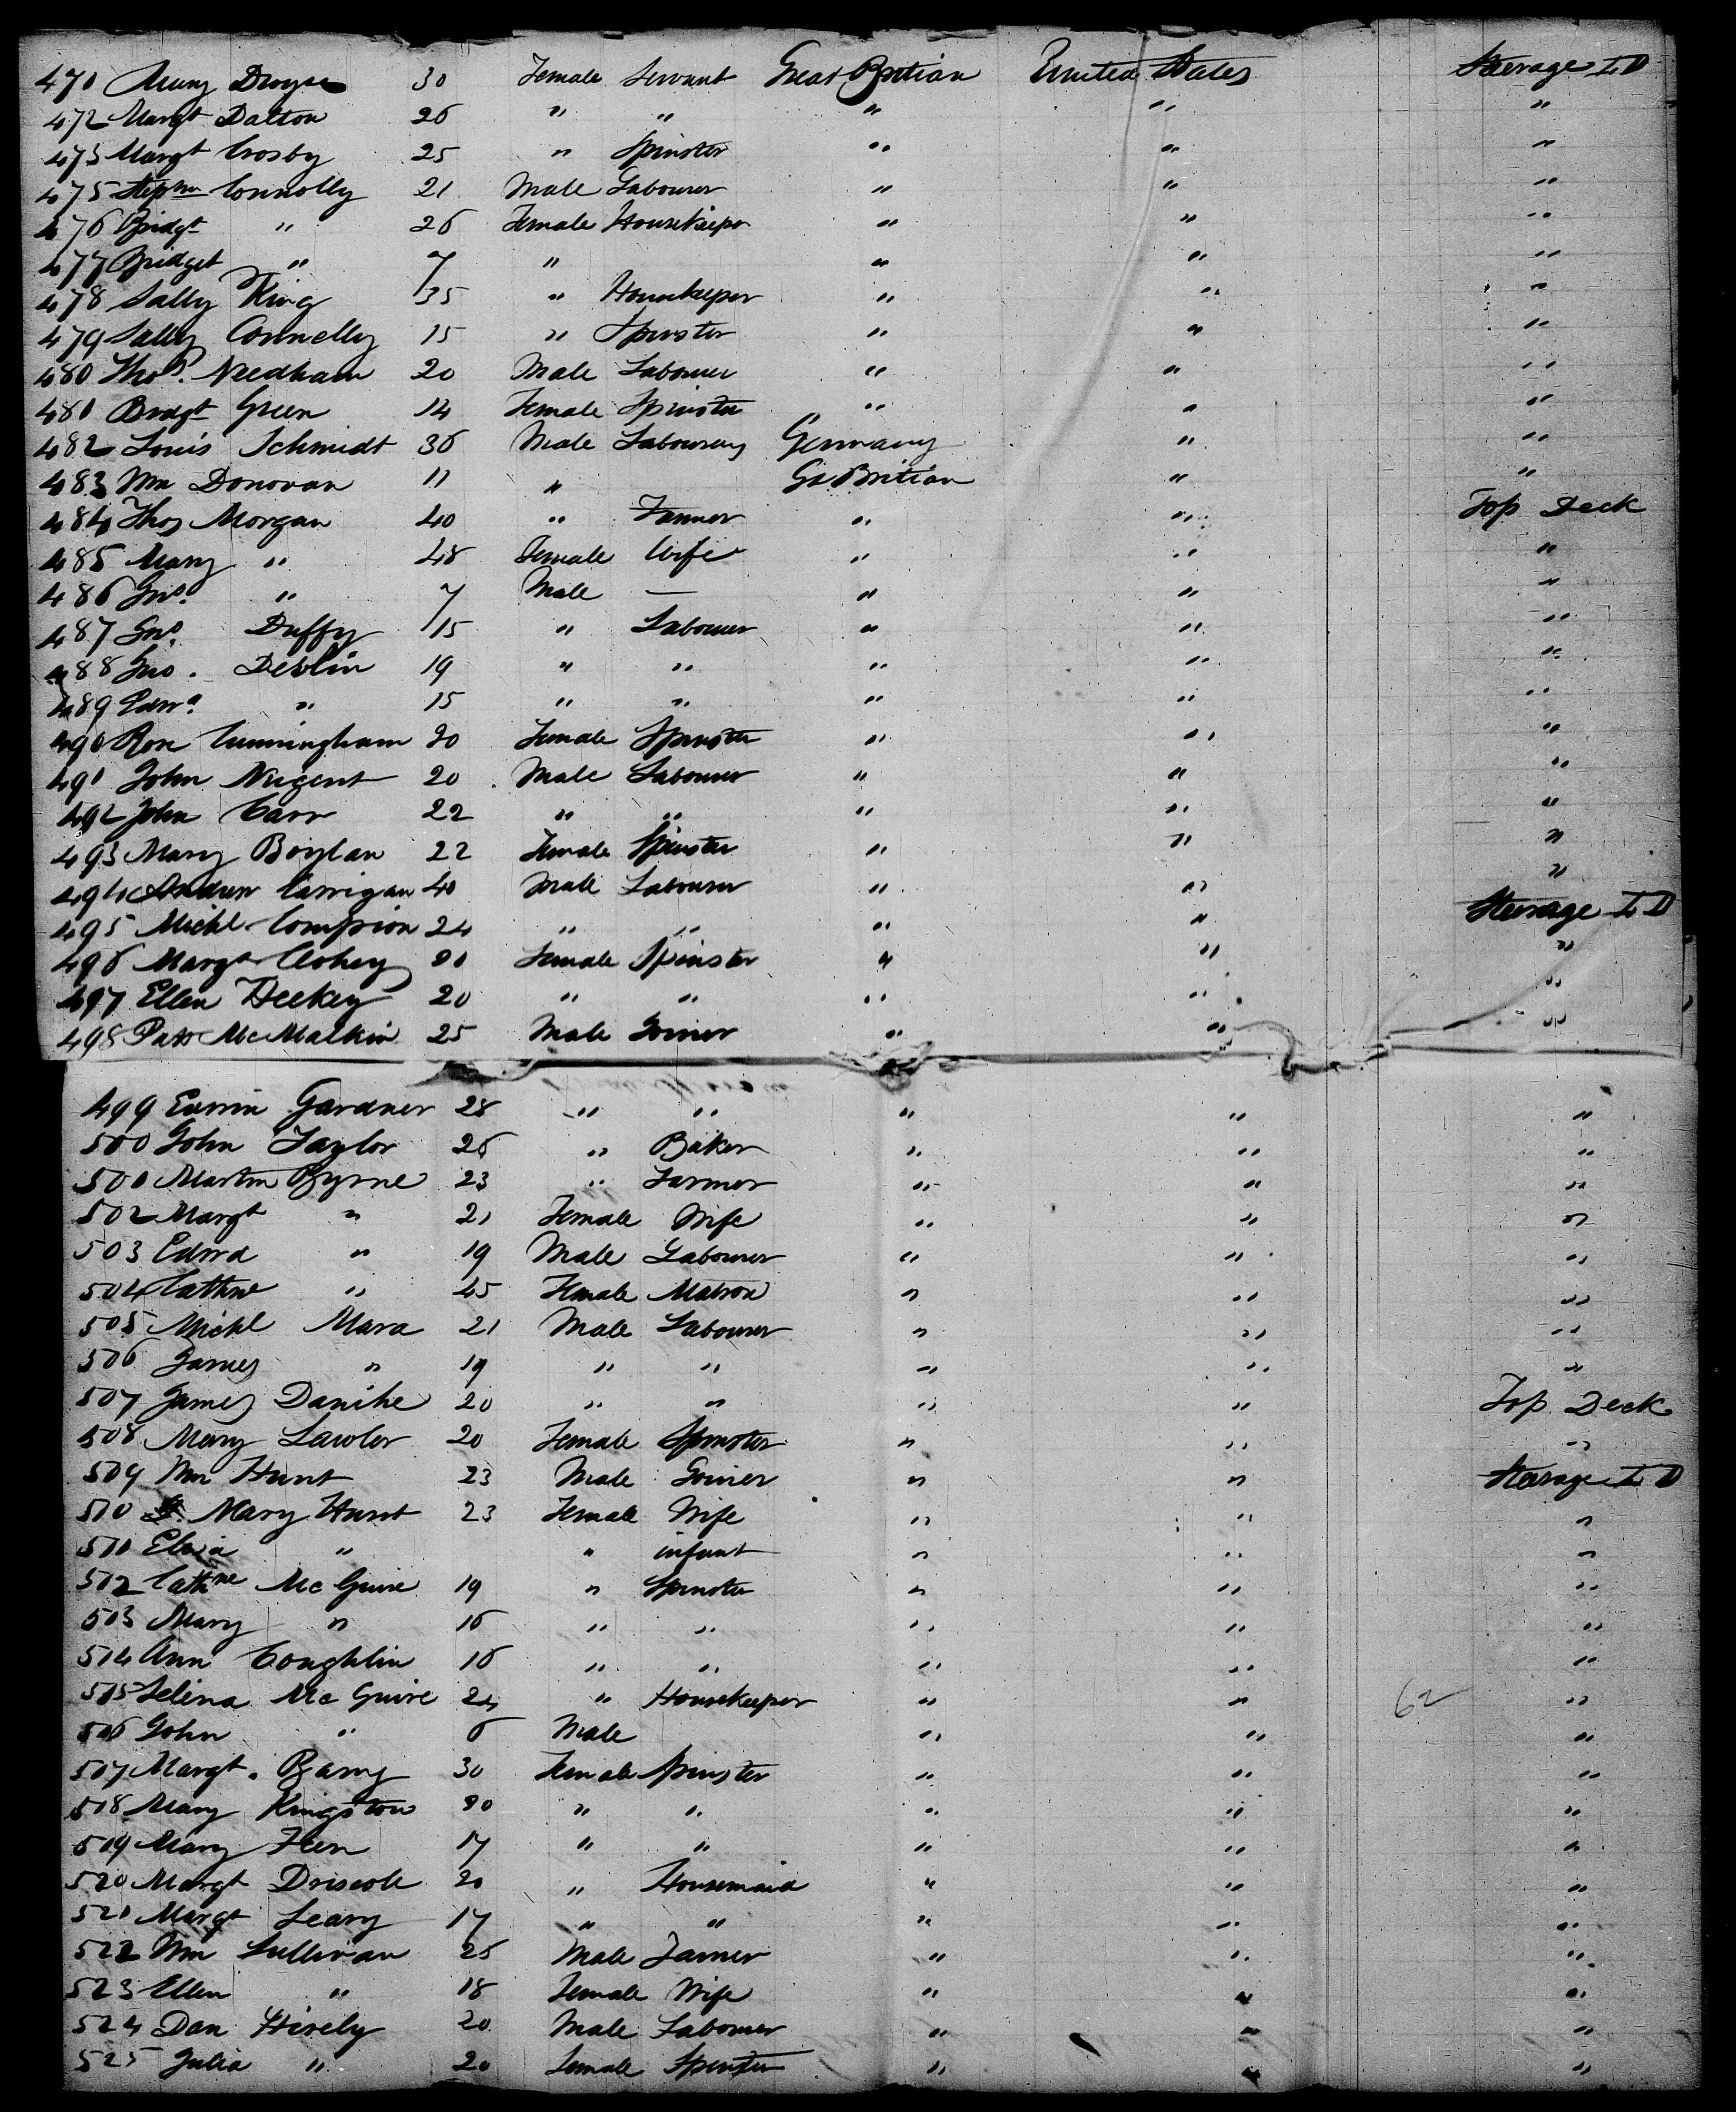 470 Mary Dwyer 30 Female Servant Great Britian United States Steerage L D
472 Margt Dalton 26 " " " " "
473 Margt Crosby 25 " Spinster " " "
475 Stephn Connolly 21 Male Labourer " " "
476 Bridgt " 26 Female Housekeeper " " "
477 Bridget " 7 " " " "
478 Sally King 35 " Housekeeper " " "
479 Sally Connelly 15 " Spinster " " "
480 Thos. Needham 20 Male Labourer " " "
481 Bridgt Green 14 Female Spinster " " "
482 Louis Schmidt 36 Male Labourer Germany " "
483 Wm Donovan 11 " Gt Britian " "
484 Thos Morgan 40 " Farmer " " Top Deck
485 Mary " 48 Female Wife " " "
486 Jno. " 7 Male — " " "
487 Jno. Duffy 15 " Labourer " " "
488 Jno. Devlin 19 " " " " "
489 Edwd. " 15 " " " " "
490 Rose Cunningham 20 Female Spinster " " "
491 John Nugent 20 Male Labourer " " "
492 John Carr 22 " " " " "
493 Mary Boylan 22 Female Spinster " " "
494 Andrew Carrigan 40 Male Labourer " " "
495 Michl Compsion 24 " " " " Steerage L D
496 Margt 20 Female Spinster " " "
497 Ellen Heekey 20 " " " " "
498 Patk McMalkin 25 Male Joiner " " "
499 Gardner 28 " " " " "
500 John Taylor 26 " Baker " " "
501 Martin Byrne 23 " Farmer " " "
502 Margt " 21 Female Wife " " "
503 Edwd " 19 Male Labourer " " "
504 Cathne " 45 Female Matron " " "
505 Michl Mara 21 Male Labourer " " "
506 James " 19 " " " " "
507 James Danihe 20 " " " " Top Deck
508 Mary Lawler 20 Female Spinster " " "
509 Wm Hunt 23 Male Joiner " " Steerage L D
510 Mary Hunt 23 Female Wife " " "
511 Eliza " " infant " " "
512 Cathne McGuire 19 " Spinster " " "
513 Mary " 16 " " " " "
514 Ann Coughlin 16 " " " " "
515 Selina McGuire 24 " Housekeeper " " 62 "
516 John " 6 Male " " "
517 Margt. Barry 30 Female Spinster " " "
518 Mary Kingston 20 " " " " "
519 Mary Feen 17 " " " " "
520 Margt Driscole 20 " Housemaid " " "
521 Margt Leary 17 " " " " "
522 Wm Sullivan 25 Male Farmer " " "
523 Ellen " 18 Female Wife " " "
524 Dan Hirely 20 Male Labourer " " "
525 Julia " 20 Female Spinster " " "